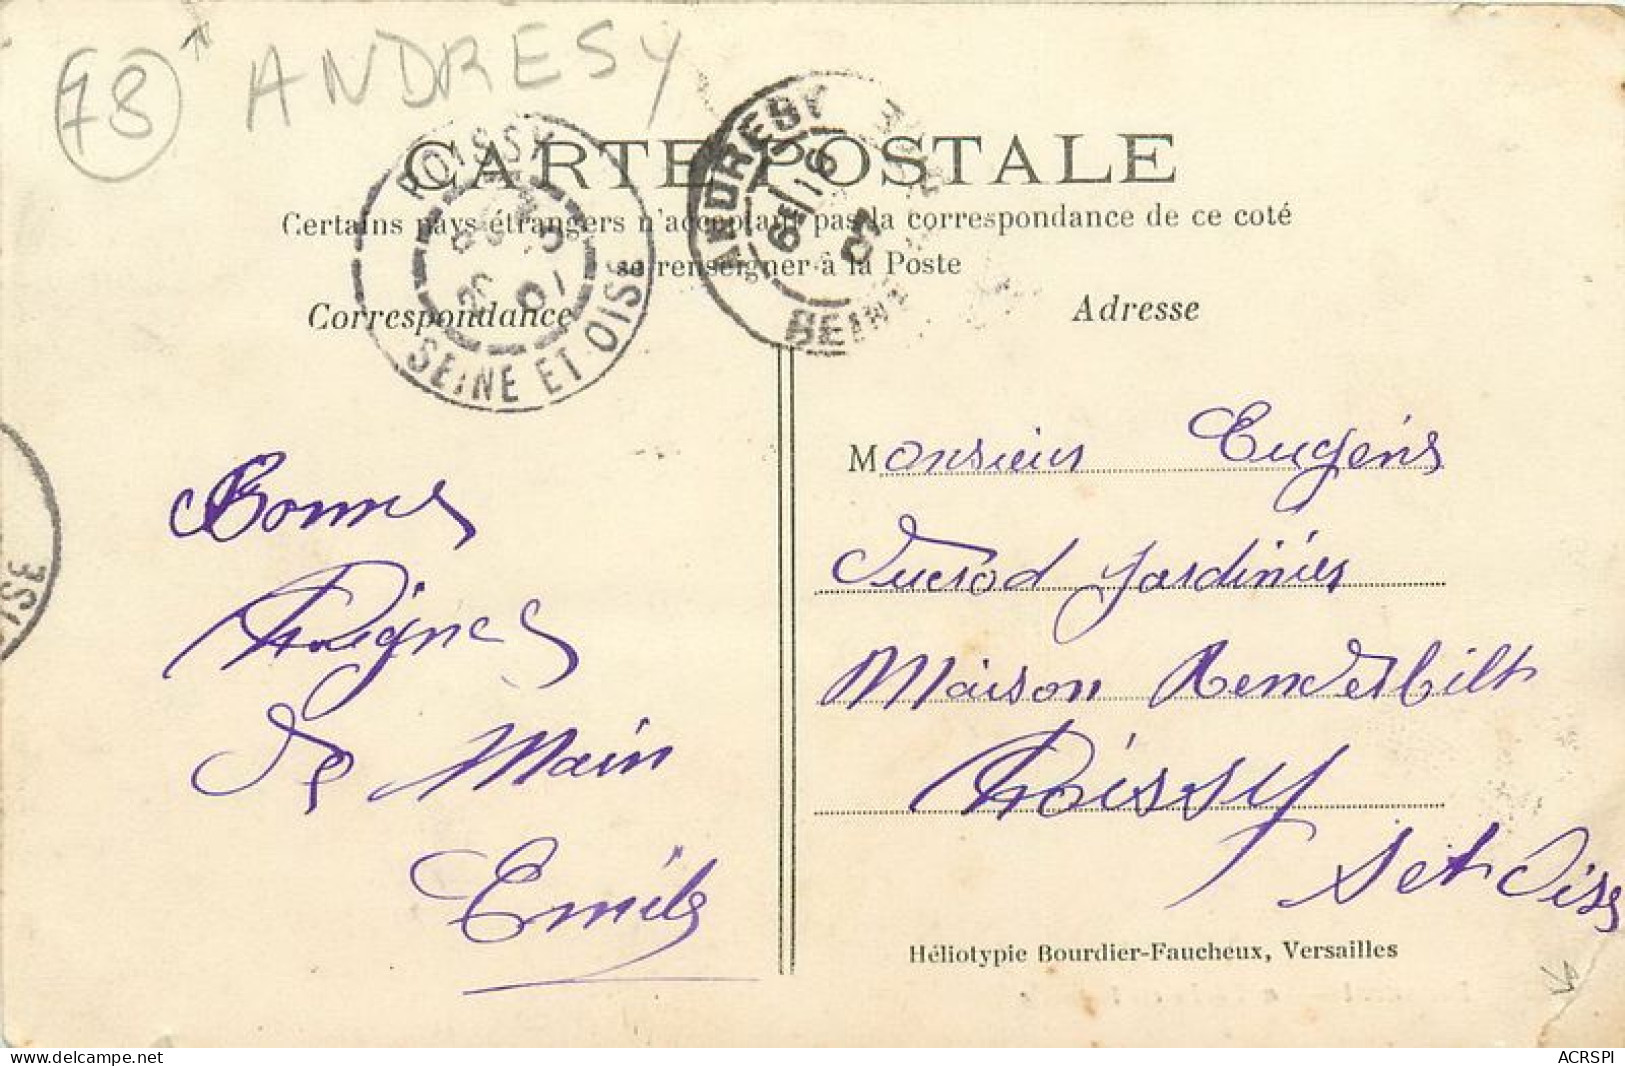 78 ANDRESY
CARTE POSTALE
Certains pays étrangers n'acceptant pas la correspondance de ce coté
se renseigner à la Poste
Correspondance
Adresse
POISSY
SEINE ET OISE
ANDRESY
6E/16
07
SEINE
ISE
Bonne
Poignee
de Main
Emile
Monsieur Eugène
jardinier
Maison Venderbilt
Poissy
S et Oise
Héliotypie Bourdier-Faucheux, Versailles
ACRSPI